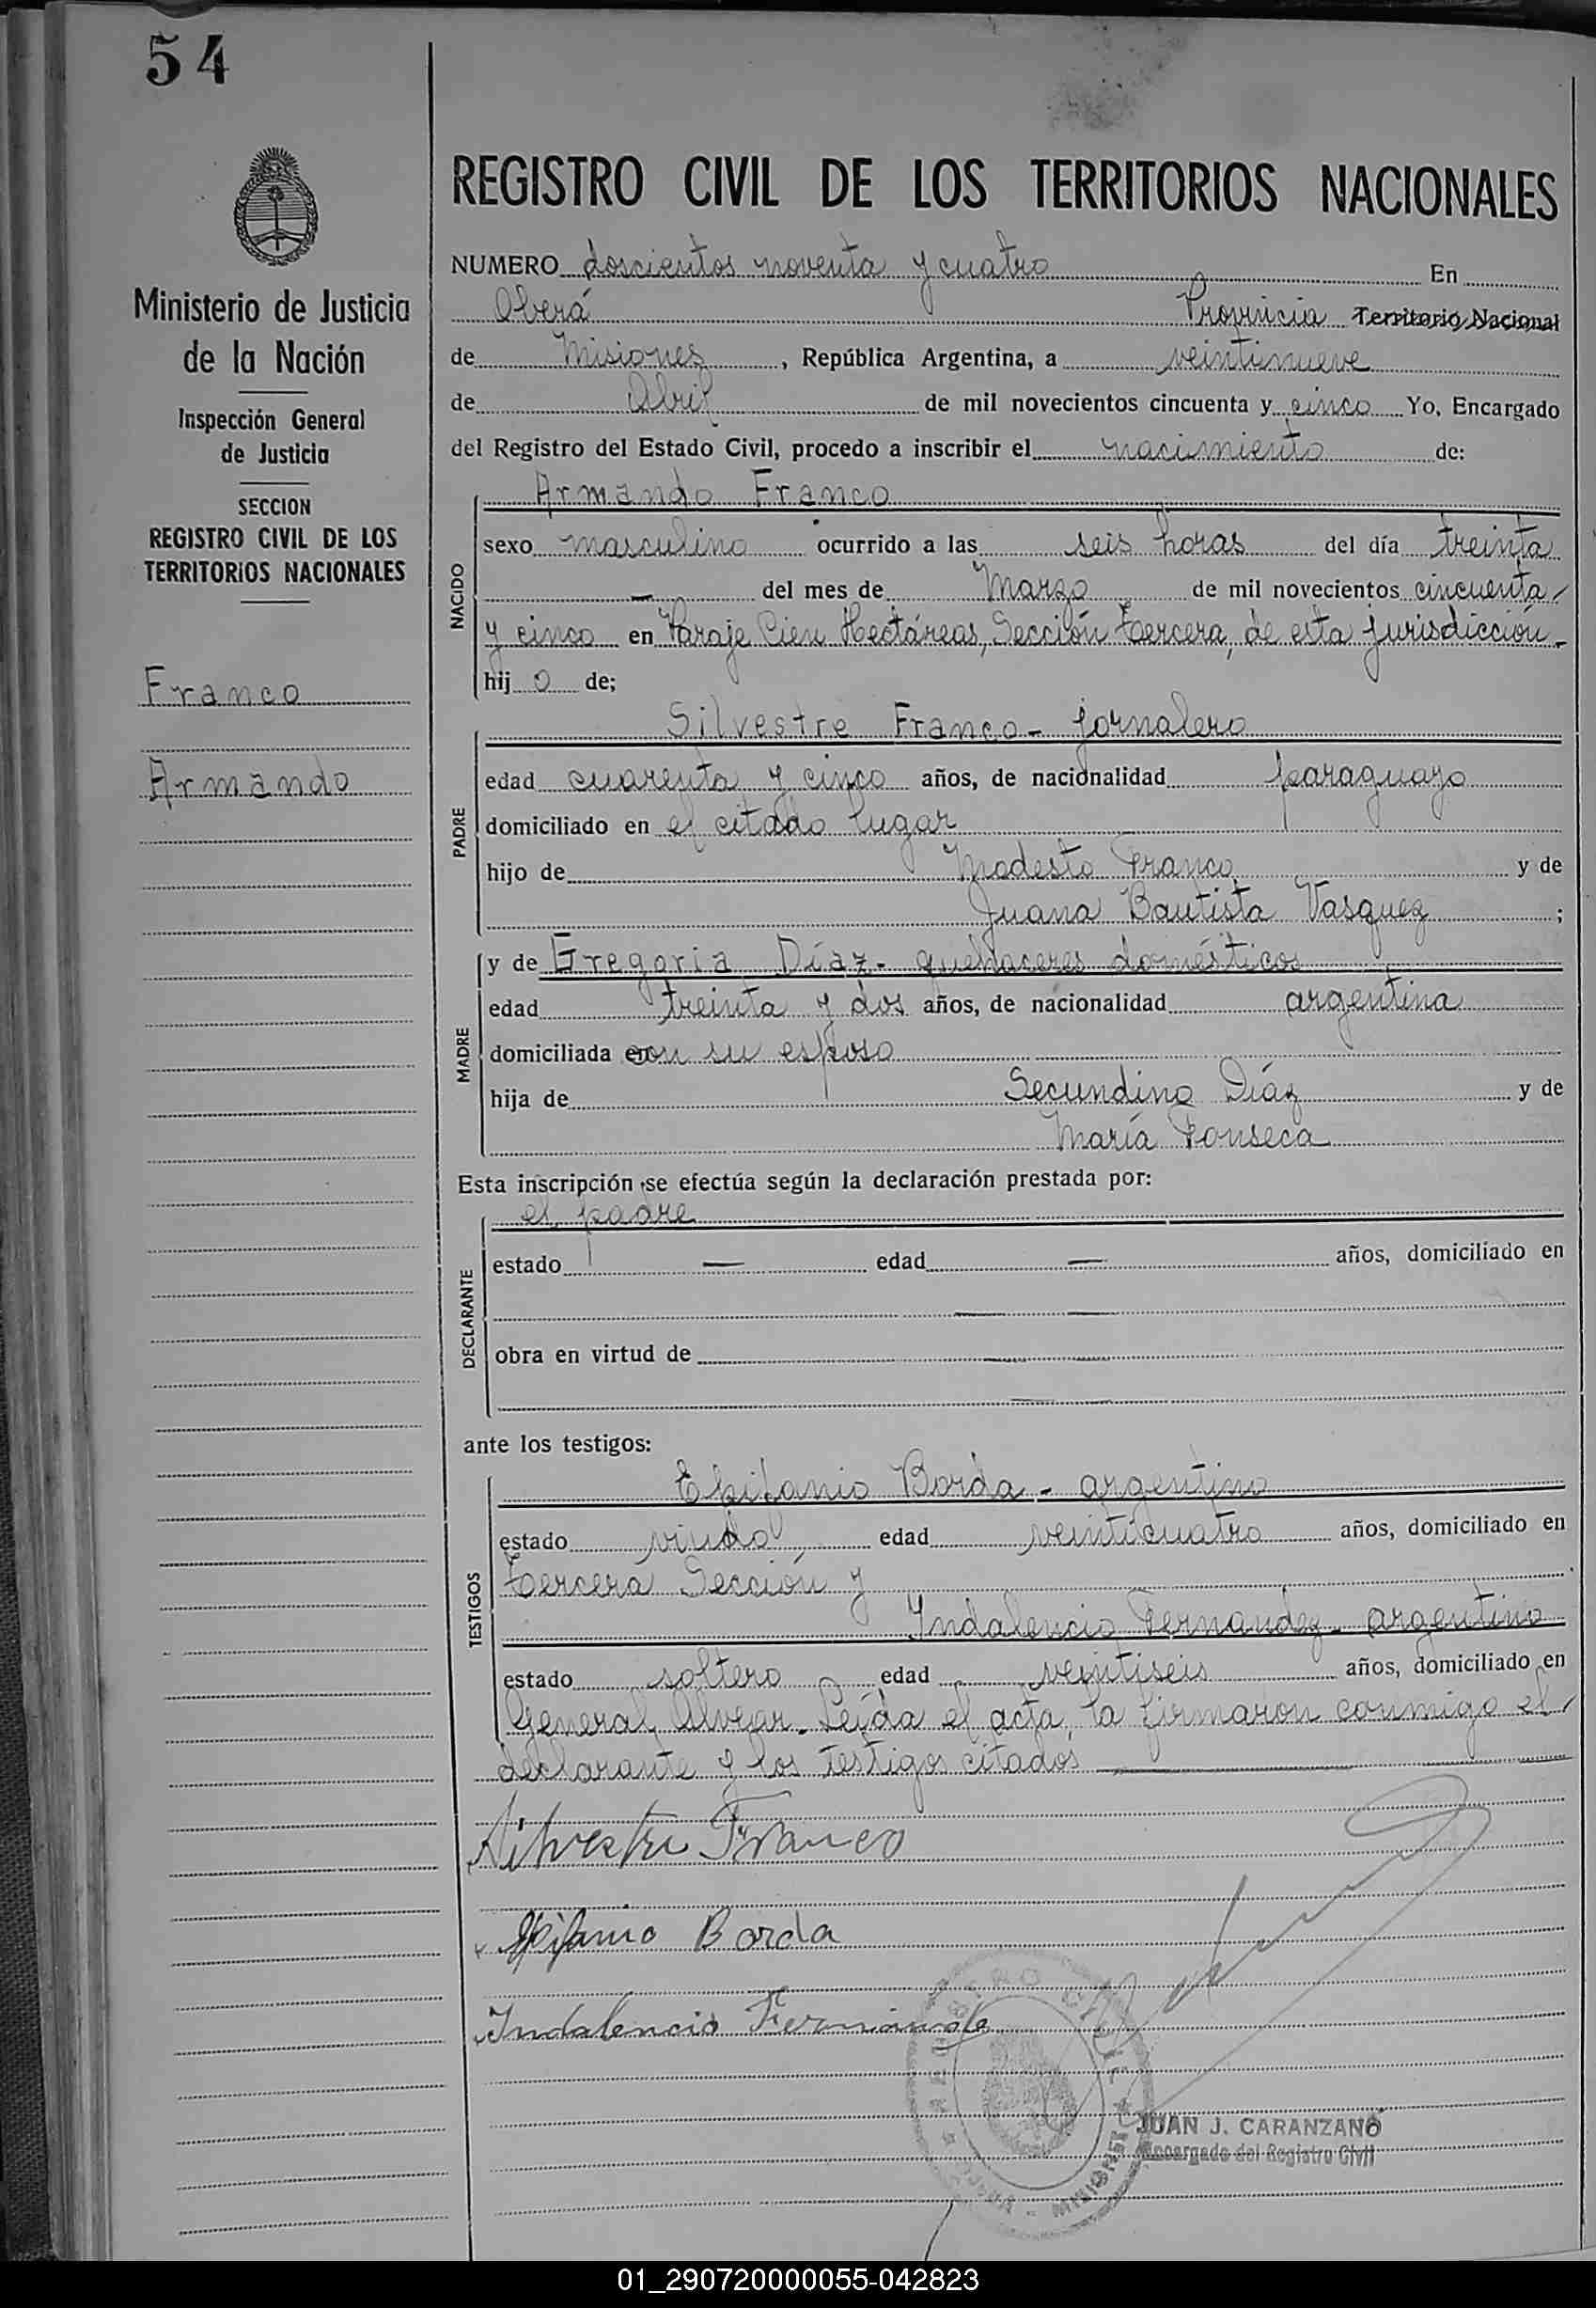 54
Ministerio de Justicia
de la Nación
Inspección General
de Justicia
SECCION
REGISTRO CIVIL DE LOS
TERRITORIOS NACIONALES
Franco
Armando
REGISTRO CIVIL DE LOS TERRITORIOS NACIONALES
NUMERO doscientos noventa y cuatro En
Oberá Provincia Territorio Nacional
de Misiones, República Argentina, a veintinueve
de Abril de mil novecientos cincuenta y cinco Yo, Encargado
del Registro del Estado Civil, procedo a inscribir el nacimiento de:
NACIDO
Armando Franco
sexo masculino ocurrido a las seis horas del día treinta
— del mes de Marzo de mil novecientos cincuenta
y cinco en Paraje Cien Hectáreas, Sección tercera, de esta jurisdicción
hij o de;
PADRE
Silvestre Franco - jornalero
edad cuarenta y cinco años, de nacionalidad paraguayo
domiciliado en el citado lugar
hijo de Modesto Franco y de
Juana Bautista Vasquez ;
MADRE
y de Gregoria Díaz - quehaceres domésticos
edad treinta y dos años, de nacionalidad argentina
domiciliada con su esposo
hija de Secundino Díaz y de
María Fonseca
Esta inscripción se efectúa según la declaración prestada por:
DECLARANTE
el padre
estado — edad — años, domiciliado en
obra en virtud de
ante los testigos:
TESTIGOS
Epifanio Borda - argentino
estado viudo edad veinticuatro años, domiciliado en
tercera Sección y
Indalencio Fernandez - argentino
estado soltero edad veintiseis años, domiciliado en
General Alvear. Leída el acta, la firmaron conmigo el
declarante y los testigos citados
Silvestre Franco
Epifanio Borda
Indalencio Fernande
REGISTRO CIVIL
MISIONES
JUAN J. CARANZANO
Encargado del Registro Civil
01_290720000055-042823